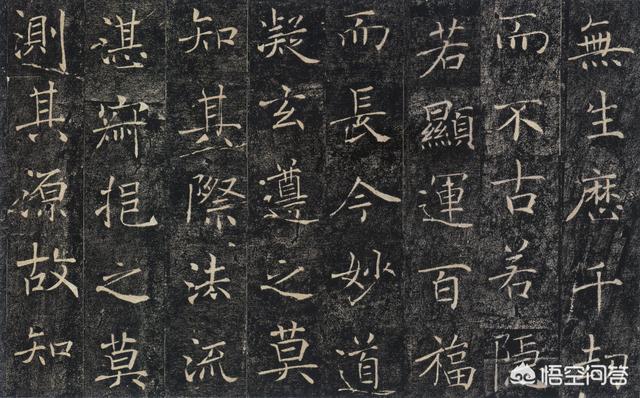 無生歷千劫
而不古若隱
若顯運百福
而長今妙道
凝玄遵之莫
知其際法流
湛寂挹之莫
測其源故知
悟空问答